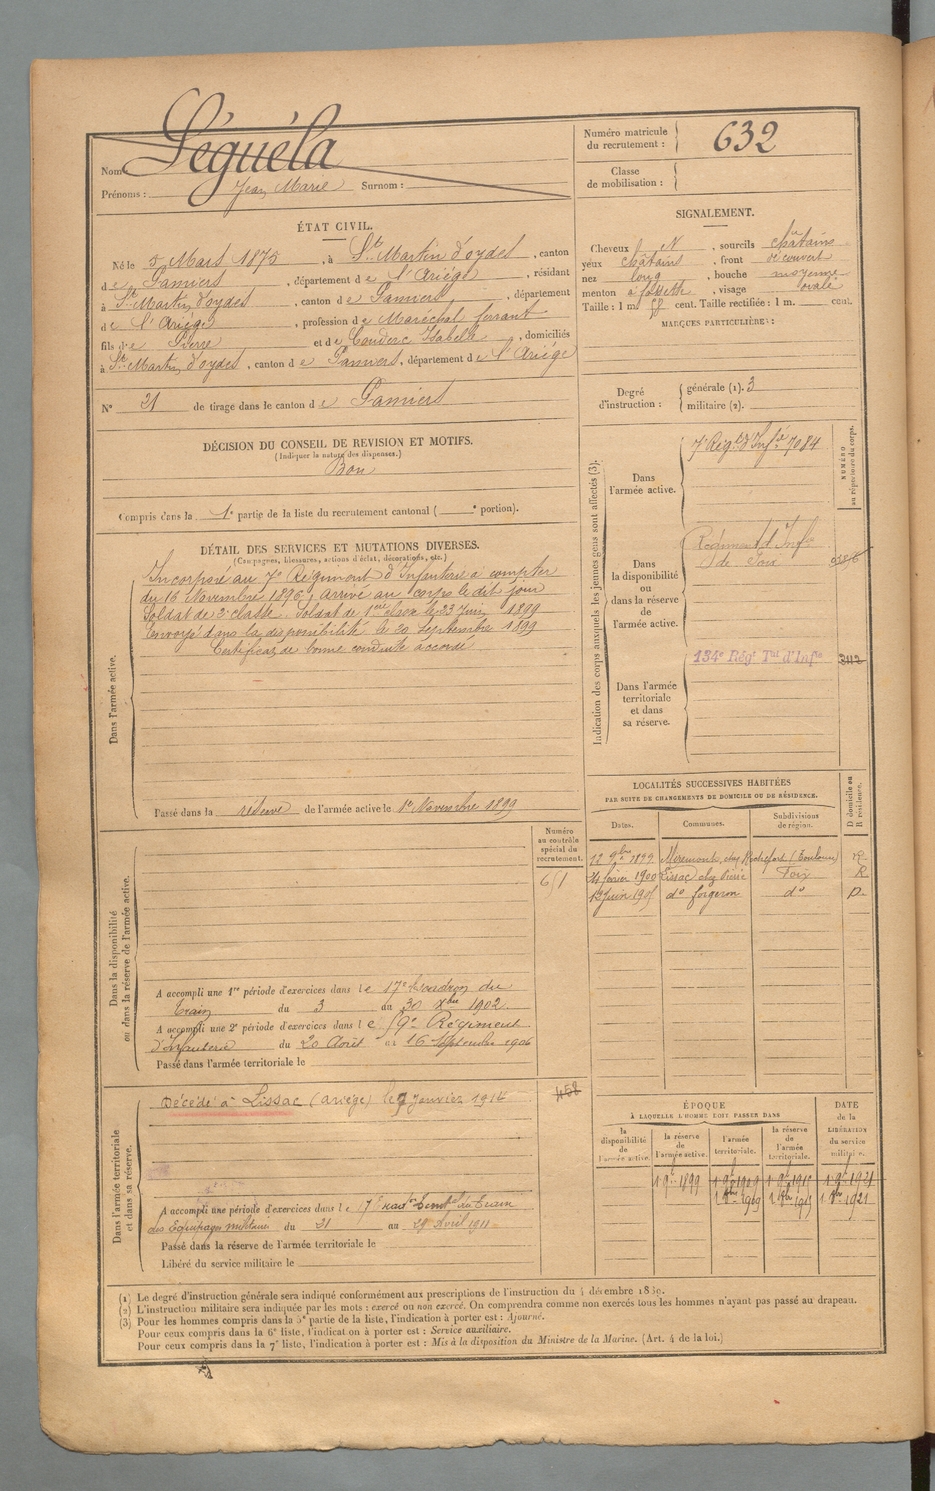 Nom : Léguéla
Prénoms : Jean Marie Surnom :
Numéro matricule du recrutement : 632
Classe de mobilisation :
ÉTAT CIVIL.
Né le 5 Mars 1875, à St Martin d'oydes, canton
de Pamiers, département de l'Ariège, résidant
à St Martin d'oydes, canton de Pamiers, département
de l'Ariège, profession de Maréchal ferrant
fils de Pierre et de Couderc Isabelle, domiciliés
à St Martin d'oydes, canton de Pamiers, département de l'Ariège
N° 21 de tirage dans le canton de Pamiers
SIGNALEMENT.
Cheveux N, sourcils châtains
yeux châtains, front découvert
nez long, bouche moyenne
menton à fossette, visage ovale
Taille : 1 m. cent. Taille rectifiée : 1 m. cent.
MARQUES PARTICULIÈRES :
Degré d'instruction : générale (1). 3
militaire (2).
DÉCISION DU CONSEIL DE REVISION ET MOTIFS.
(Indiquer la nature des dispenses.)
Bon
Compris dans la 1e partie de la liste du recrutement cantonal ( e portion).
DÉTAIL DES SERVICES ET MUTATIONS DIVERSES.
(Campagnes, blessures, actions d'éclat, décorations, etc.)
Dans l'armée active.
Incorporé au 7e Régiment d'Infanterie à compter
du 16 Novembre 1896, arrivé au corps le dit jour
Soldat de 2e classe. Soldat de 1ere classe le 23 Juin 1899
Envoyé dans la disponibilité le 20 Septembre 1899
Certificat de bonne conduite accordé
Passé dans la réserve de l'armée active le 1er Novembre 1899
Indication des corps auxquels les jeunes gens sont affectés (3).
NUMÉRO au répertoire du corps.
Dans l'armée active.
7e Régt d'Infie 7084
Dans la disponibilité ou dans la réserve de l'armée active.
Régiment d'Infie
de Foix
Dans l'armée territoriale et dans sa réserve.
134e Régt Tal d'Infie
LOCALITÉS SUCCESSIVES HABITÉES
PAR SUITE DE CHANGEMENTS DE DOMICILE OU DE RÉSIDENCE.
Dates. Communes. Subdivisions de région. D domicile ou R résidence.
12 9bre 1899 Miremont, chez Rochefort (Toulouse) R
24 février 1900 Lissac chez Foix R
13 Juin 1905 do forgeron do D.
Dans la disponibilité ou dans la réserve de l'armée active.
Numéro au contrôle spécial du recrutement.
651
A accompli une 1re période d'exercices dans le 17e Escadron du
Train du 3 au 30 Xbre 1902
A accompli une 2e période d'exercices dans le 59e Régiment
d'Infanterie du 20 Août au 16 Septembre 1906
Passé dans l'armée territoriale le
Dans l'armée territoriale et dans sa réserve.
Décédé à Lissac (Ariège) le 9 Janvier 1914
458
A accompli une période d'exercices dans le Train
des Equipages militaires du 21 au 29 Avril 1911
Passé dans la réserve de l'armée territoriale le
Libéré du service militaire le
ÉPOQUE
À LAQUELLE L'HOMME DOIT PASSER DANS
la disponibilité de l'armée active.
la réserve de l'armée active.
l'armée territoriale.
la réserve de l'armée territoriale.
DATE de la LIBÉRATION du service militaire.
(1) Le degré d'instruction générale sera indiqué conformément aux prescriptions de l'instruction du 4 décembre 1889.
(2) L'instruction militaire sera indiquée par les mots : exercé ou non exercé. On comprendra comme non exercés tous les hommes n'ayant pas passé au drapeau.
(3) Pour les hommes compris dans la 5e partie de la liste, l'indication à porter est : Ajourné.
Pour ceux compris dans la 6e liste, l'indication à porter est : Service auxiliaire.
Pour ceux compris dans la 7e liste, l'indication à porter est : Mis à la disposition du Ministre de la Marine. (Art. 4 de la loi.)